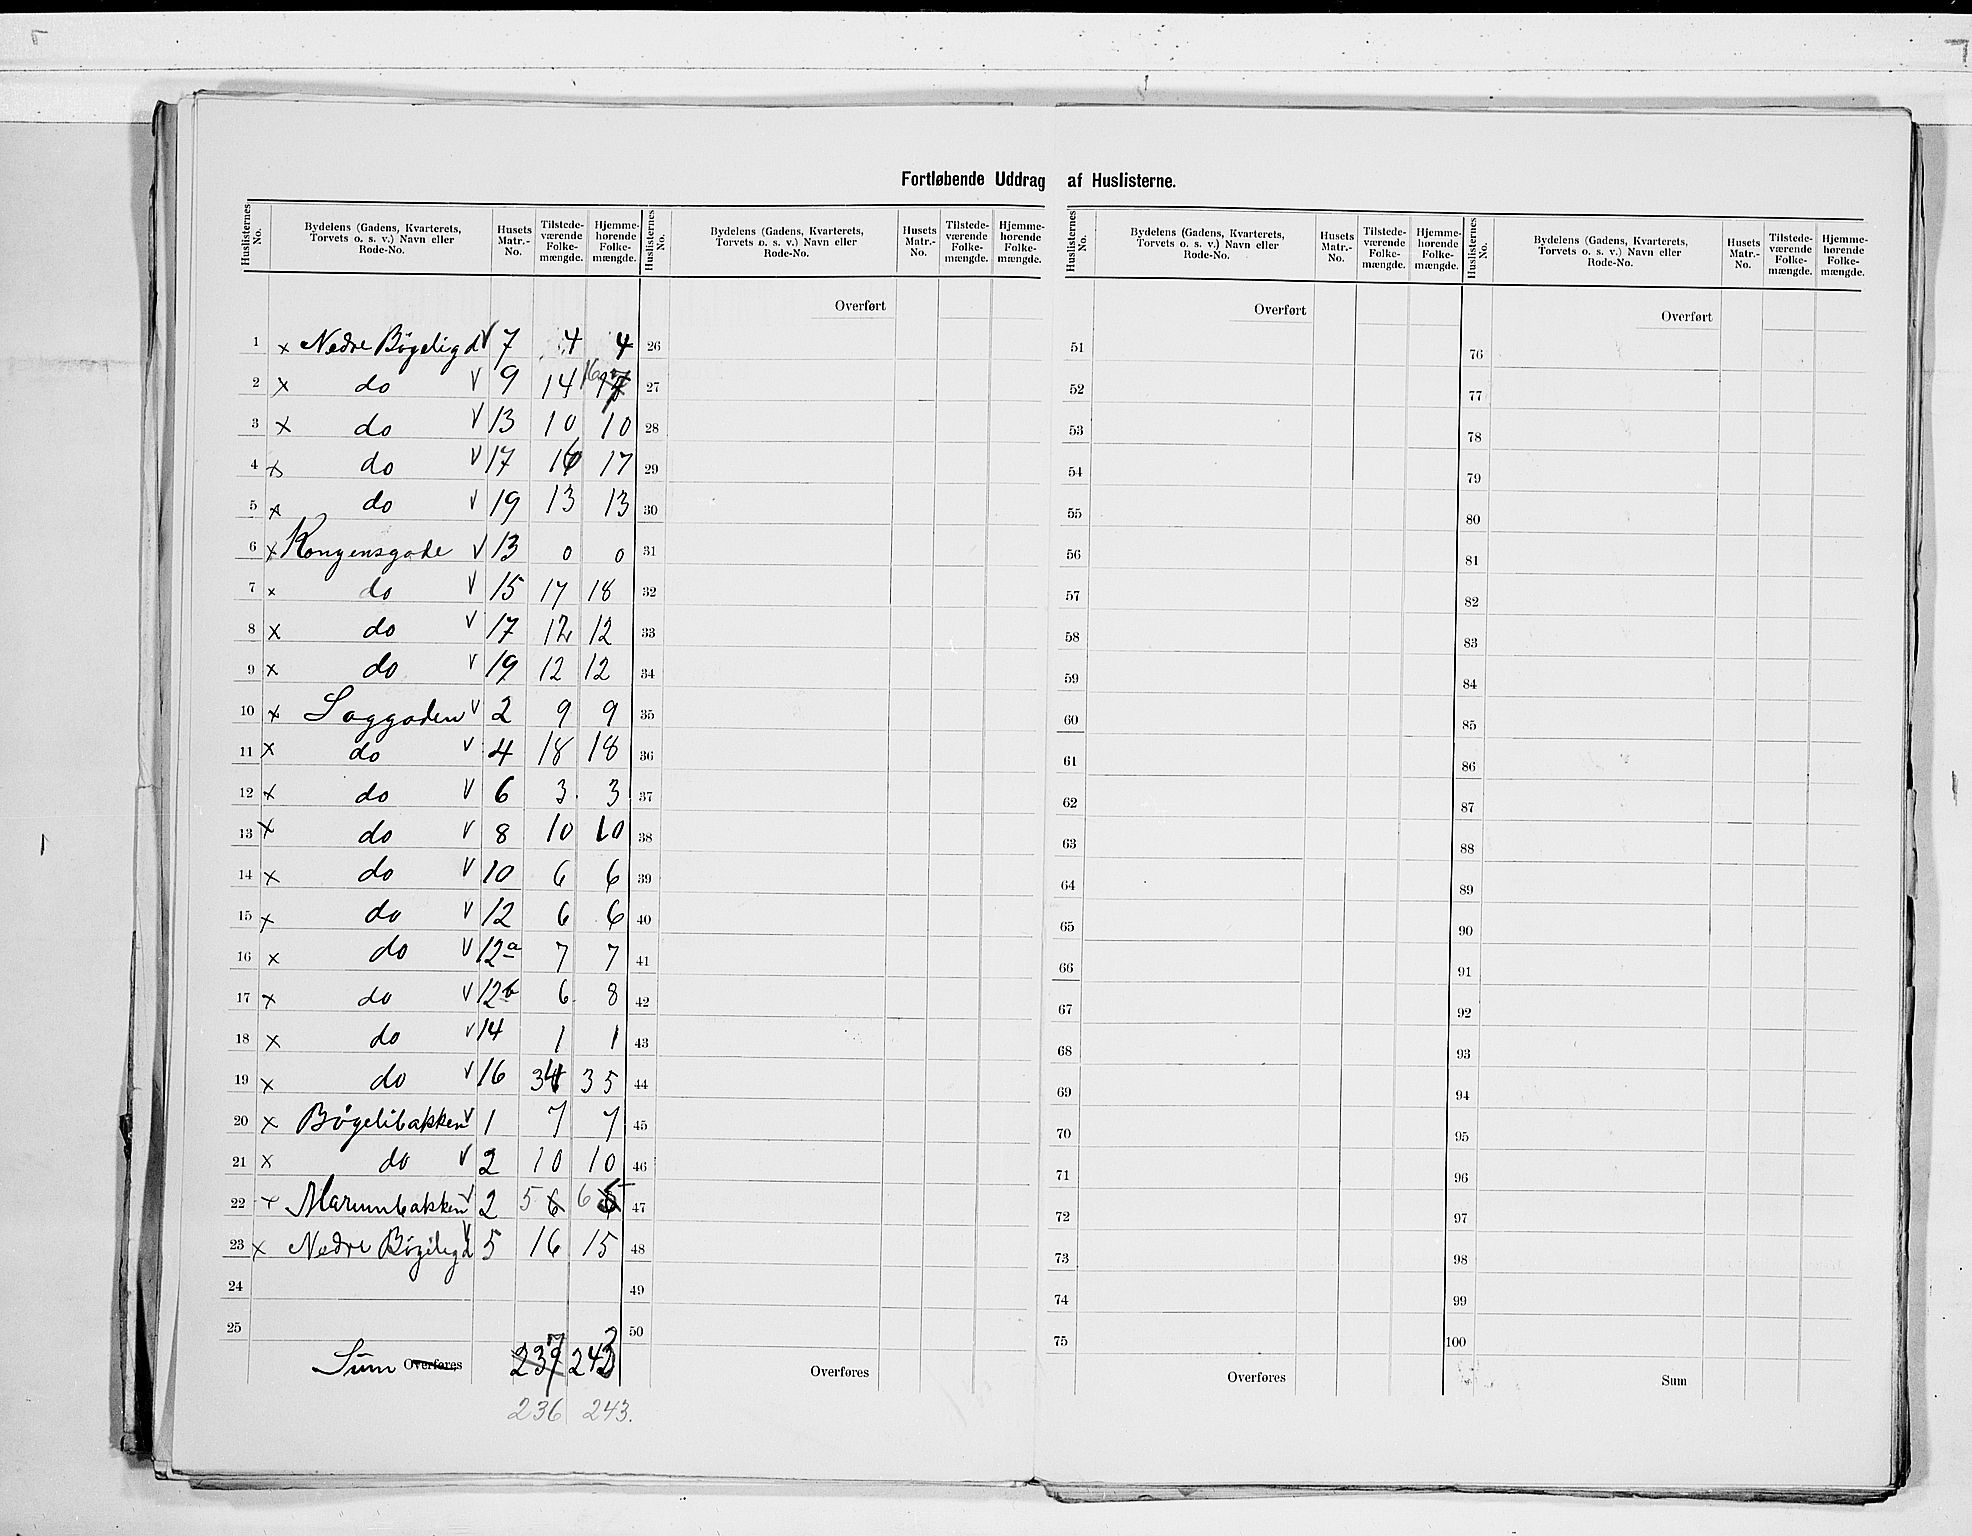 Fortløbende Uddrag af Huslisterne.
Huslisternes No. | Bydelens (Gadens, Kvarterets, Torvets o. s. v.) Navn eller Rode-No. | Husets Matr.-No. | Tilstedeværende Folkemængde. | Hjemmehørende Folkemængde.
Huslisternes No. | Bydelens (Gadens, Kvarterets, Torvets o. s. v.) Navn eller Rode-No. | Husets Matr.-No. | Tilstedeværende Folkemængde. | Hjemmehørende Folkemængde.
Huslisternes No. | Bydelens (Gadens, Kvarterets, Torvets o. s. v.) Navn eller Rode-No. | Husets Matr.-No. | Tilstedeværende Folkemængde. | Hjemmehørende Folkemængde.
Huslisternes No. | Bydelens (Gadens, Kvarterets, Torvets o. s. v.) Navn eller Rode-No. | Husets Matr.-No. | Tilstedeværende Folkemængde. | Hjemmehørende Folkemængde.
Overført Overført Overført
1 x Nedre Bøgeligd V 7 4 4 26 51 76
2 x do V 9 14 16 17 27 52 77
3 x do V 13 10 10 28 53 78
4 x do V 17 16 17 29 54 79
5 x do V 19 13 13 30 55 80
6 x Kongensgade V 13 0 0 31 56 81
7 x do V 15 17 18 32 57 82
8 x do V 17 12 12 33 58 83
9 x do V 19 12 12 34 59 84
10 x Saggaden V 2 9 9 35 60 85
11 x do V 4 18 18 36 61 86
12 x do V 6 3 3 37 62 87
13 x do V 8 10 10 38 63 88
14 x do V 10 6 6 39 64 89
15 x do V 12 6 6 40 65 90
16 x do V 12a 7 7 41 66 91
17 x do V 12b 6 8 42 67 92
18 x do V 14 1 1 43 68 93
19 x do V 16 34 35 44 69 94
20 x Bøgelibakken V 1 7 7 45 70 95
21 x do V 2 10 10 46 71 96
22 x Marumbakken V 2 5 6 6 5 47 72 97
23 x Nedre Bøgeligd V 5 16 15 48 73 98
24 49 74 99
25 50 75 100
Sum Overføres 237 243 Overføres Overføres Sum
236 243.